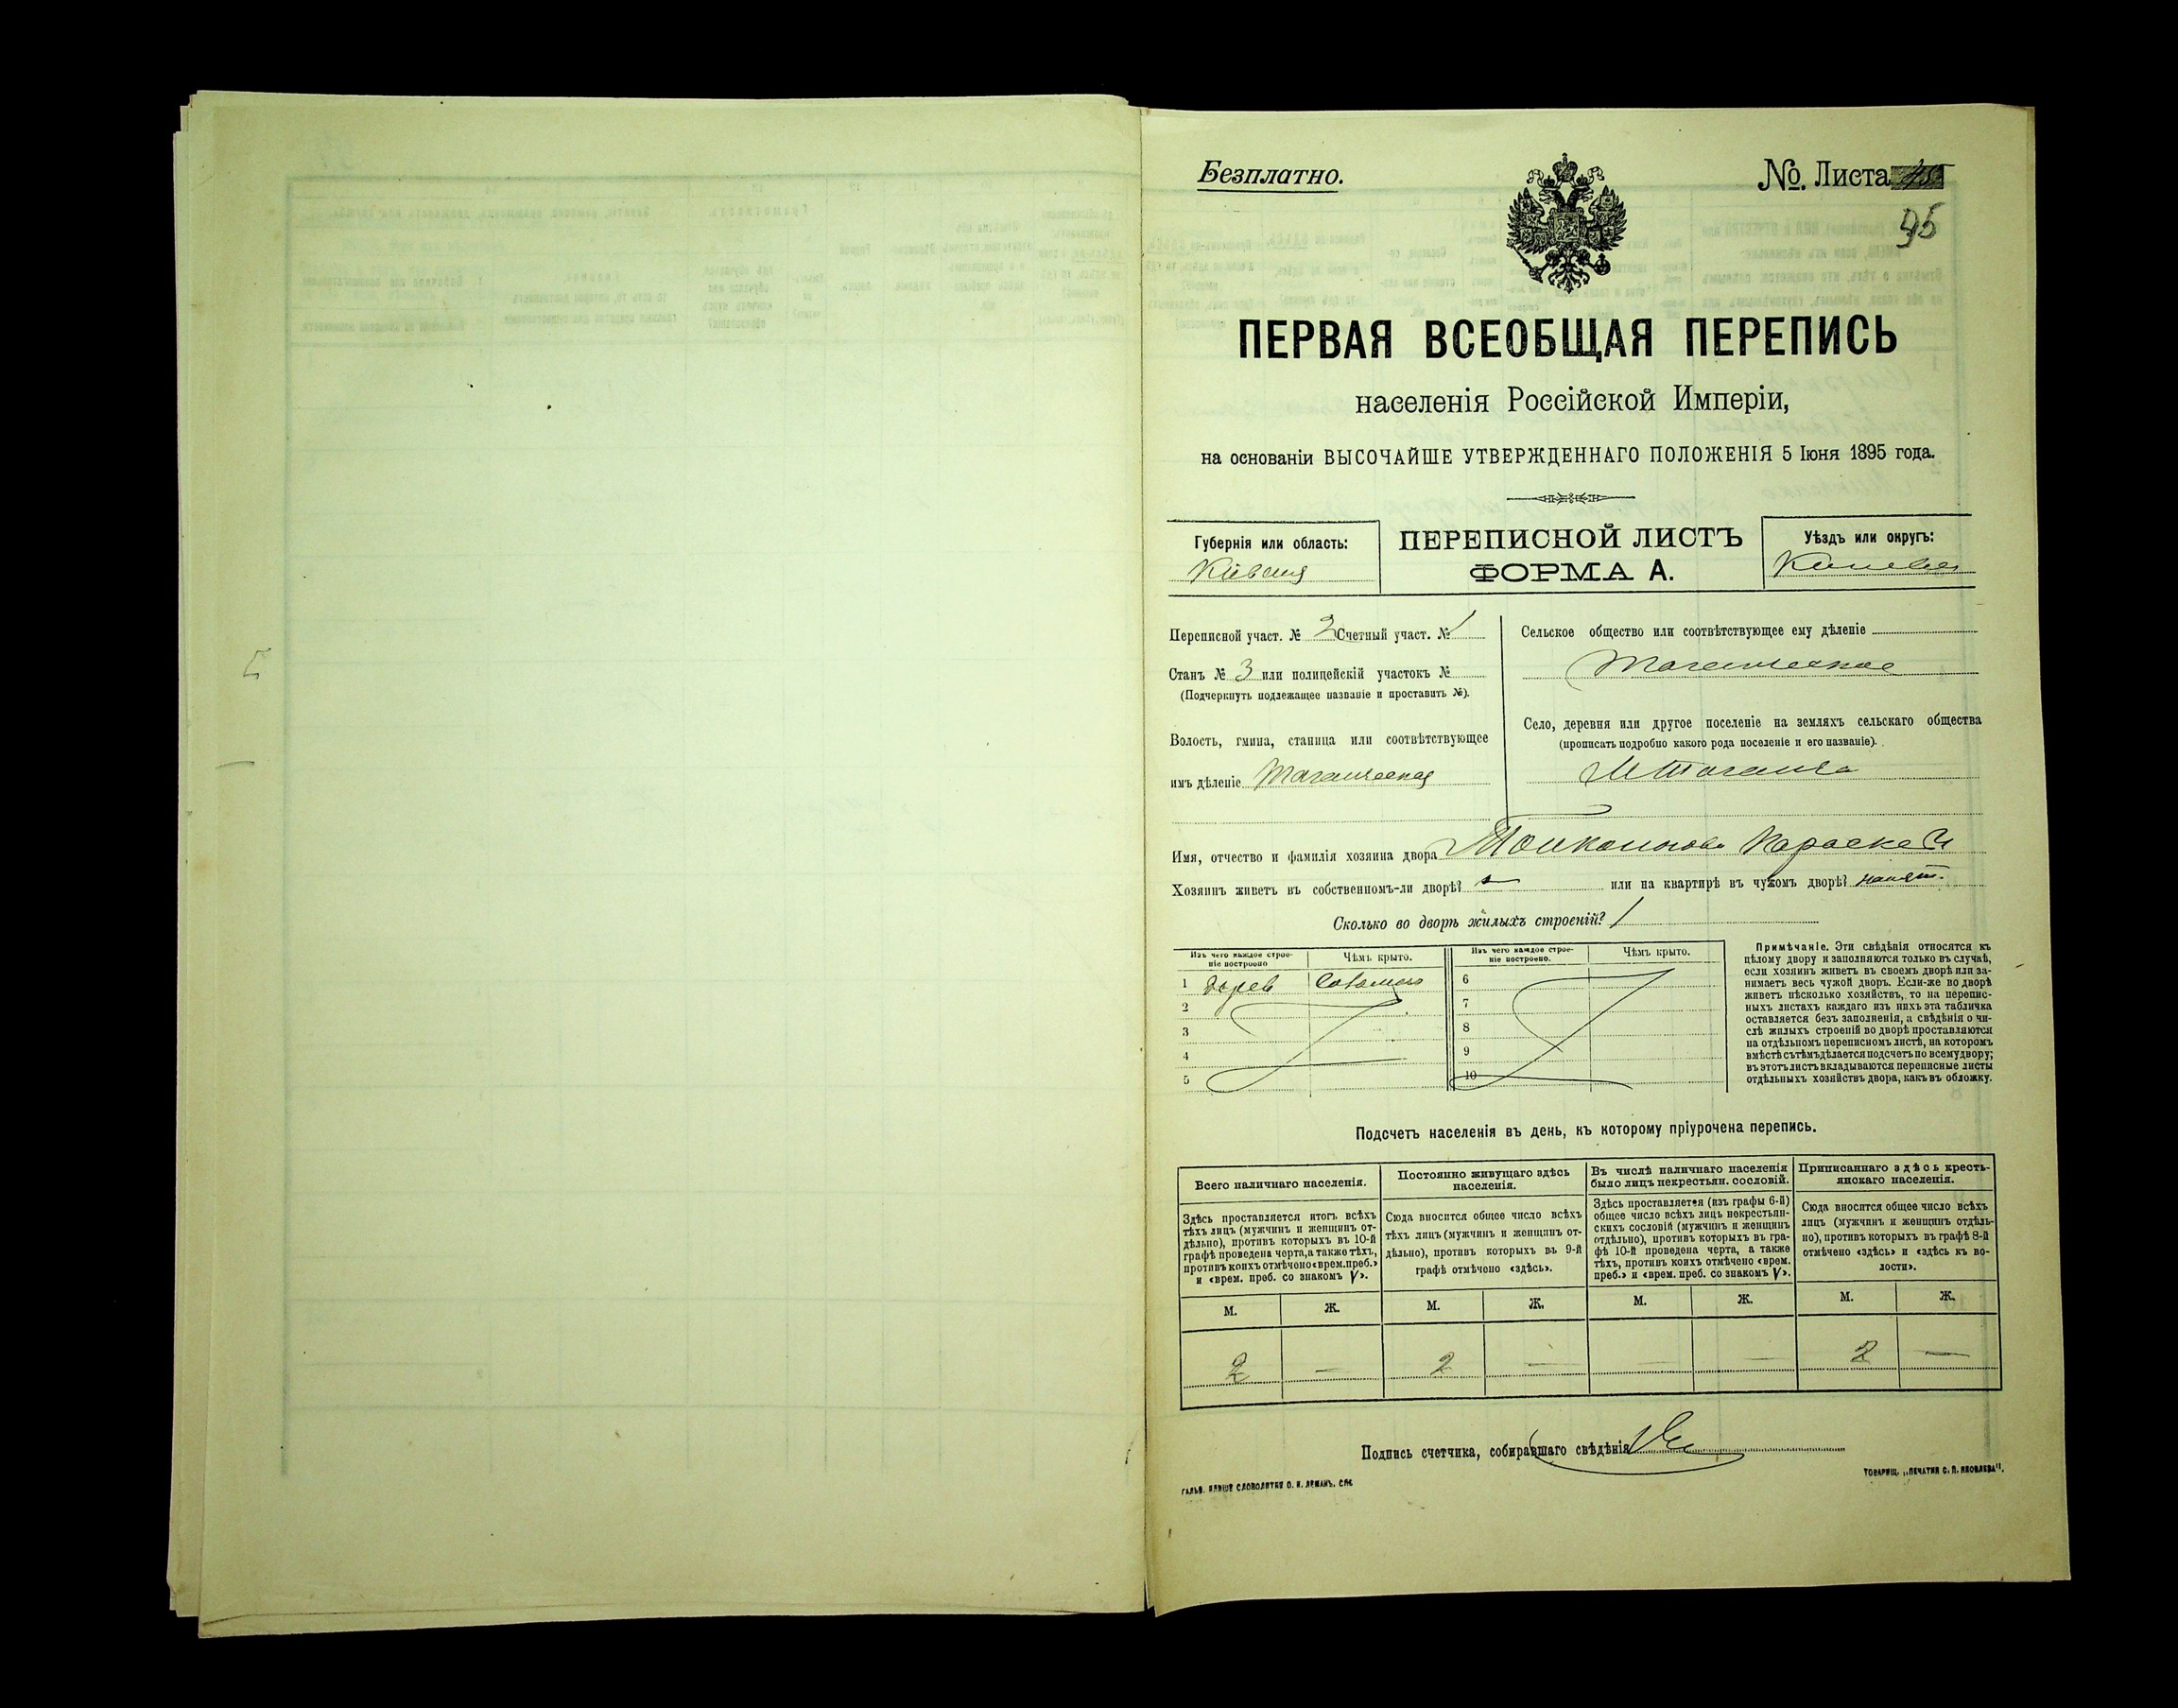 Безплатно.
№. Листа
95
ПЕРВАЯ ВСЕОБЩАЯ ПЕРЕПИСЬ
населенія Россійской Имперіи,
на основаніи ВЫСОЧАЙШЕ УТВЕРЖДЕННАГО ПОЛОЖЕНІЯ 5 Іюня 1895 года.
Губернія или область:
Кіевская
ПЕРЕПИСНОЙ ЛИСТЪ
ФОРМА А.
Уѣздъ или округъ:
Переписной участ. № 2 Счетный участ. № 1
Станъ № 3 или полицейскій участокъ №
(Подчеркнуть подлежащее названіе и проставить №).
Волость, гмина, станица или соотвѣтствующее
имъ дѣленіе Таганчская
Сельское общество или соотвѣтствующее ему дѣленіе
Таганчское
Село, деревня или другое поселеніе на земляхъ сельскаго общества
(прописать подробно какого рода поселеніе и его названіе).
М Таганча
Имя, отчество и фамилія хозяина двора
Хозяинъ живетъ въ собственномъ-ли дворѣ? — или на квартирѣ въ чужомъ дворѣ?
Сколько во дворѣ жилыхъ строеній? 1
Изъ чего каждое строе-
ніе построено
Чѣмъ крыто.
Изъ чего каждое строе-
ніе построено.
Чѣмъ крыто.
1 дерев Соломою
2
3
4
5
6
7
8
9
10
Примѣчаніе. Эти свѣдѣнія относятся къ
цѣлому двору и заполняются только въ случаѣ,
если хозяинъ живетъ въ своемъ дворѣ или за-
нимаетъ весь чужой дворъ. Если-же во дворѣ
живетъ нѣсколько хозяйствъ, то на перепис-
ныхъ листахъ каждаго изъ нихъ эта табличка
оставляется безъ заполненія, а свѣдѣнія о чи-
слѣ жилыхъ строеній во дворѣ проставляются
на отдѣльномъ переписномъ листѣ, на которомъ
вмѣстѣ съ тѣмъ дѣлается подсчетъ по всему двору;
въ этотъ листъ вкладываются переписные листы
отдѣльныхъ хозяйствъ двора, какъ въ обложку.
Подсчетъ населенія въ день, къ которому пріурочена перепись.
Всего наличнаго населенія.
Здѣсь проставляется итогъ всѣхъ
тѣхъ лицъ (мужчинъ и женщинъ от-
дѣльно), противъ которыхъ въ 10-й
графѣ проведена черта, а также тѣхъ,
противъ коихъ отмѣчено «врем. преб.»
и «врем. преб. со знакомъ V».
Постоянно живущаго здѣсь
населенія.
Сюда вносится общее число всѣхъ
тѣхъ лицъ (мужчинъ и женщинъ от-
дѣльно), противъ которыхъ въ 9-й
графѣ отмѣчено «здѣсь».
Въ числѣ наличнаго населенія
было лицъ некрестьян. сословій.
Здѣсь проставляется (изъ графы 6-й)
общее число всѣхъ лицъ некрестьян-
скихъ сословій (мужчинъ и женщинъ
отдѣльно), противъ которыхъ въ гра-
фѣ 10-й проведена черта, а также
тѣхъ, противъ коихъ отмѣчено «врем.
преб.» и «врем. преб. со знакомъ V».
Приписаннаго здѣсь кресть-
янскаго населенія.
Сюда вносится общее число всѣхъ
лицъ (мужчинъ и женщинъ отдѣль-
но), противъ которыхъ въ графѣ 8-й
отмѣчено «здѣсь» и «здѣсь къ во-
лости».
М. Ж. М. Ж. М. Ж. М. Ж.
2 — 2 — — — 2 —
Подпись счетчика, собиравшаго свѣдѣнія
ТОВАРИЩ. „ПЕЧАТНЯ С. П. ЯКОВЛЕВА".